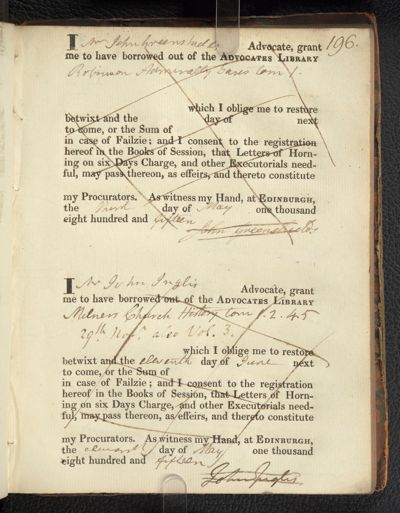 196.
I Mr John Greenshields Advocate, grant
me to have borrowed out of the ADVOCATES LIBRARY
Robinson Admiralty Cases tom 1.
which I oblige me to restore
betwixt and the day of next
to come, or the Sum of
in case of Failzie; and I consent to the registration
hereof in the Books of Session, that Letters of Horn-
ing on six Days Charge, and other Executorials need-
ful, may pass thereon, as effeirs, and thereto constitute
my Procurators. As witness my Hand, at EDINBURGH,
the third day of May one thousand
eight hundred and fifteen
John Greenshields
I Mr John Inglis Advocate, grant
me to have borrowed out of the ADVOCATES LIBRARY
Milners Church History tom 1. 2. 4. 5
29th Novr. also Vol. 3.
which I oblige me to restore
betwixt and the eleventh day of June next
to come, or the Sum of
in case of Failzie; and I consent to the registration
hereof in the Books of Session, that Letters of Horn-
ing on six Days Charge, and other Executorials need-
ful, may pass thereon, as effeirs, and thereto constitute
my Procurators. As witness my Hand, at EDINBURGH,
the eleventh day of May one thousand
eight hundred and fifteen
John Inglis